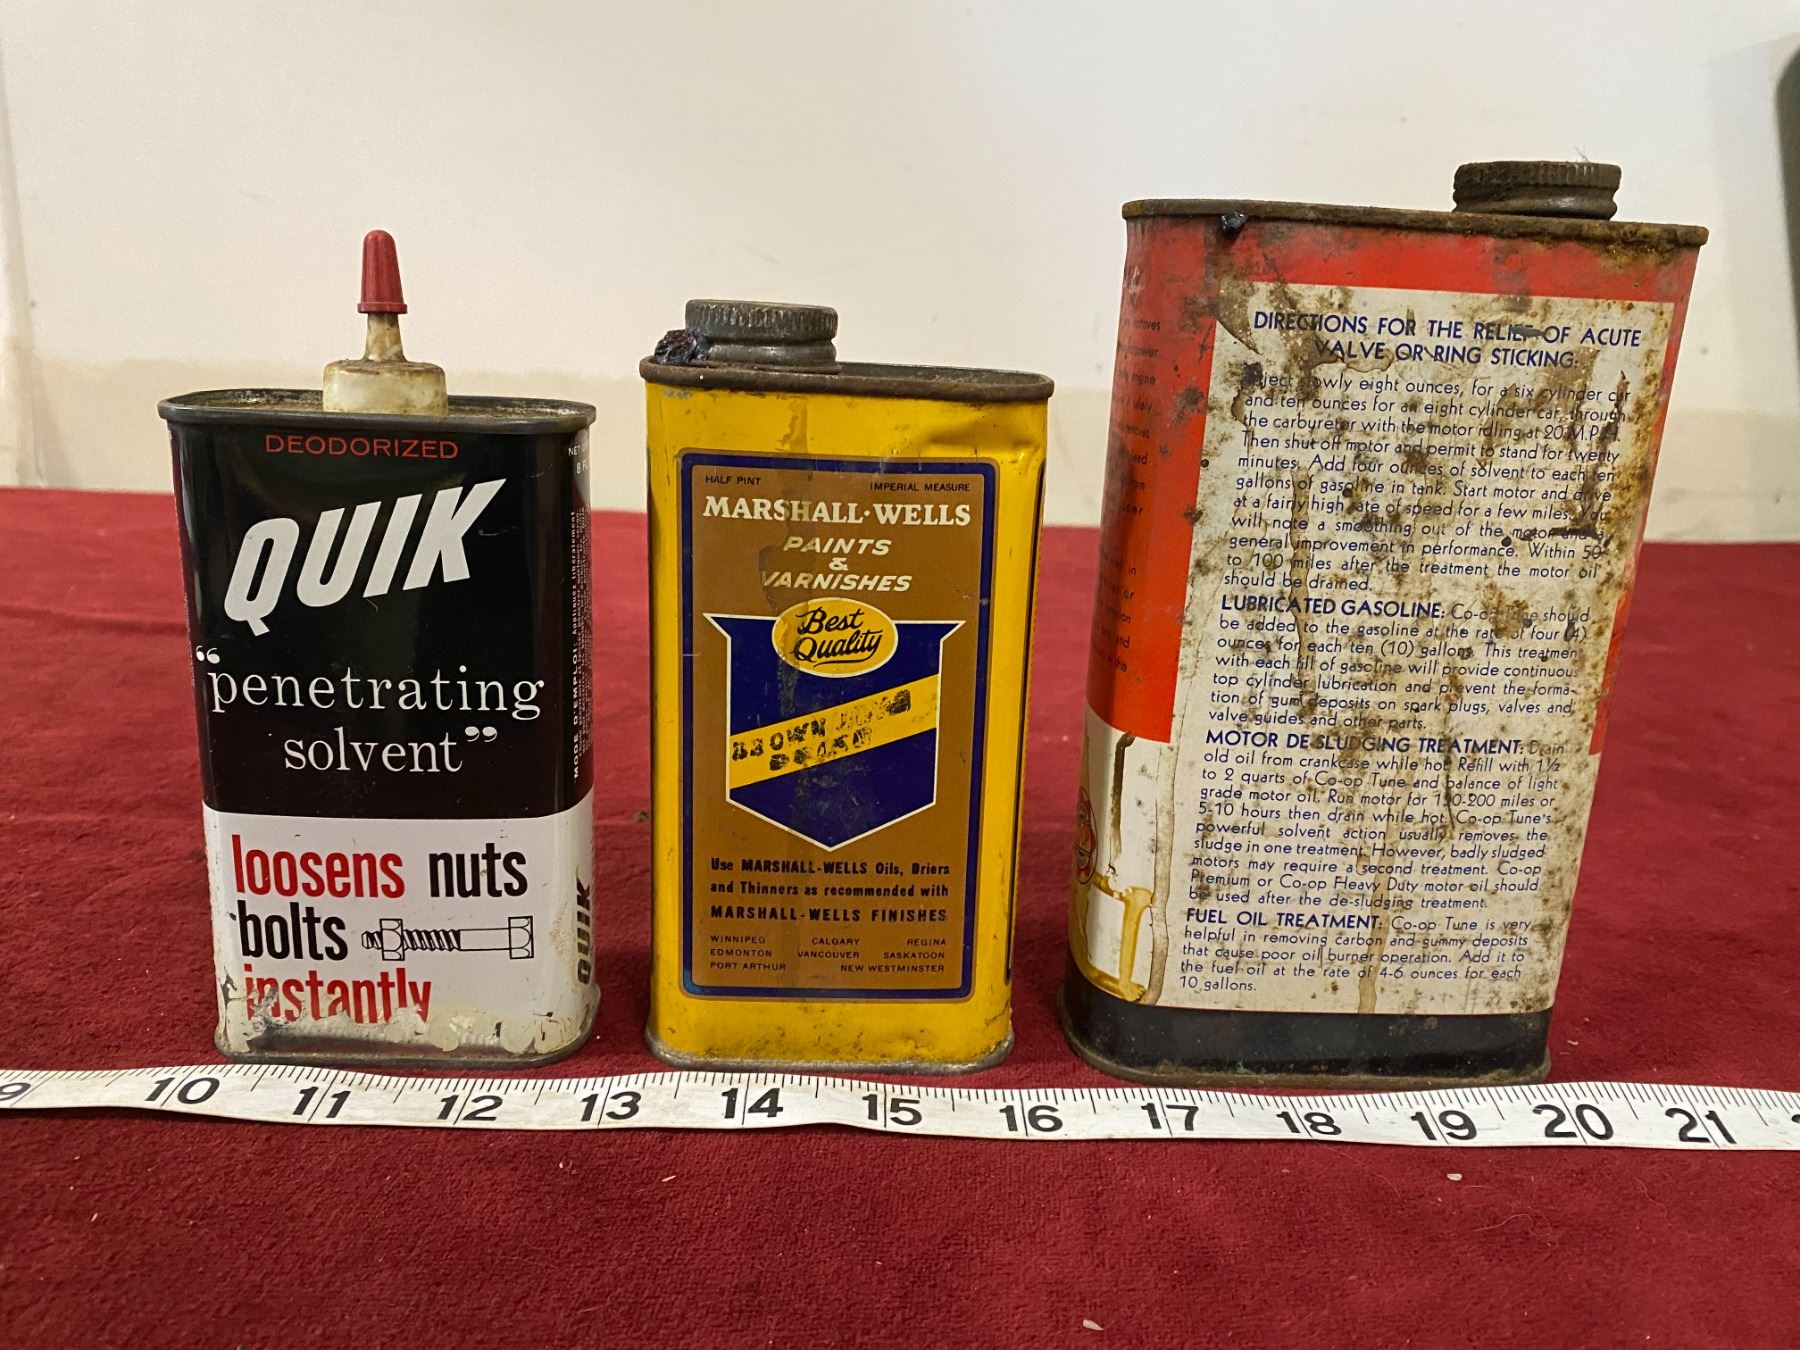 DEODORIZED
QUIK
“penetrating
solvent”
loosens nuts
bolts
instantly
MODE D'EMPLOI:
QUIK
HALF PINT IMPERIAL MEASURE
MARSHALL-WELLS
PAINTS
&
VARNISHES
Best
Quality
BROWN
Use MARSHALL-WELLS Oils, Driers
and Thinners as recommended with
MARSHALL-WELLS FINISHES
WINNIPEG CALGARY REGINA
EDMONTON VANCOUVER SASKATOON
PORT ARTHUR NEW WESTMINSTER
DIRECTIONS FOR THE RELIEF OF ACUTE
VALVE OR RING STICKING:
slowly eight ounces, for a six cylinder car
and ten ounces for an eight cylinder car, through
the carburetor with the motor idling at 20 M.P.H.
Then shut off motor and permit to stand for twenty
minutes. Add four ounces of solvent to each ten
gallons of gasoline in tank. Start motor and drive
at a fairly high rate of speed for a few miles. You
will note a smoothing out of the motor and a
general improvement in performance. Within 50
to 100 miles after the treatment the motor oil
should be drained.
LUBRICATED GASOLINE: Co-op Tune should
be added to the gasoline at the rate of four (4)
ounces for each ten (10) gallons. This treatment
with each fill of gasoline will provide continuous
top cylinder lubrication and prevent the forma-
tion of gum deposits on spark plugs, valves and
valve guides and other parts.
MOTOR DE-SLUDGING TREATMENT: Drain
old oil from crankcase while hot. Refill with 1½
to 2 quarts of Co-op Tune and balance of light
grade motor oil. Run motor for 150-200 miles or
5-10 hours then drain while hot. Co-op Tune's
powerful solvent action usually removes the
sludge in one treatment. However, badly sludged
motors may require a second treatment. Co-op
Premium or Co-op Heavy Duty motor oil should
be used after the de-sludging treatment.
FUEL OIL TREATMENT: Co-op Tune is very
helpful in removing carbon and gummy deposits
that cause poor oil burner operation. Add it to
the fuel oil at the rate of 4-6 ounces for each
10 gallons.
9 10 11 12 13 14 15 16 17 18 19 20 21